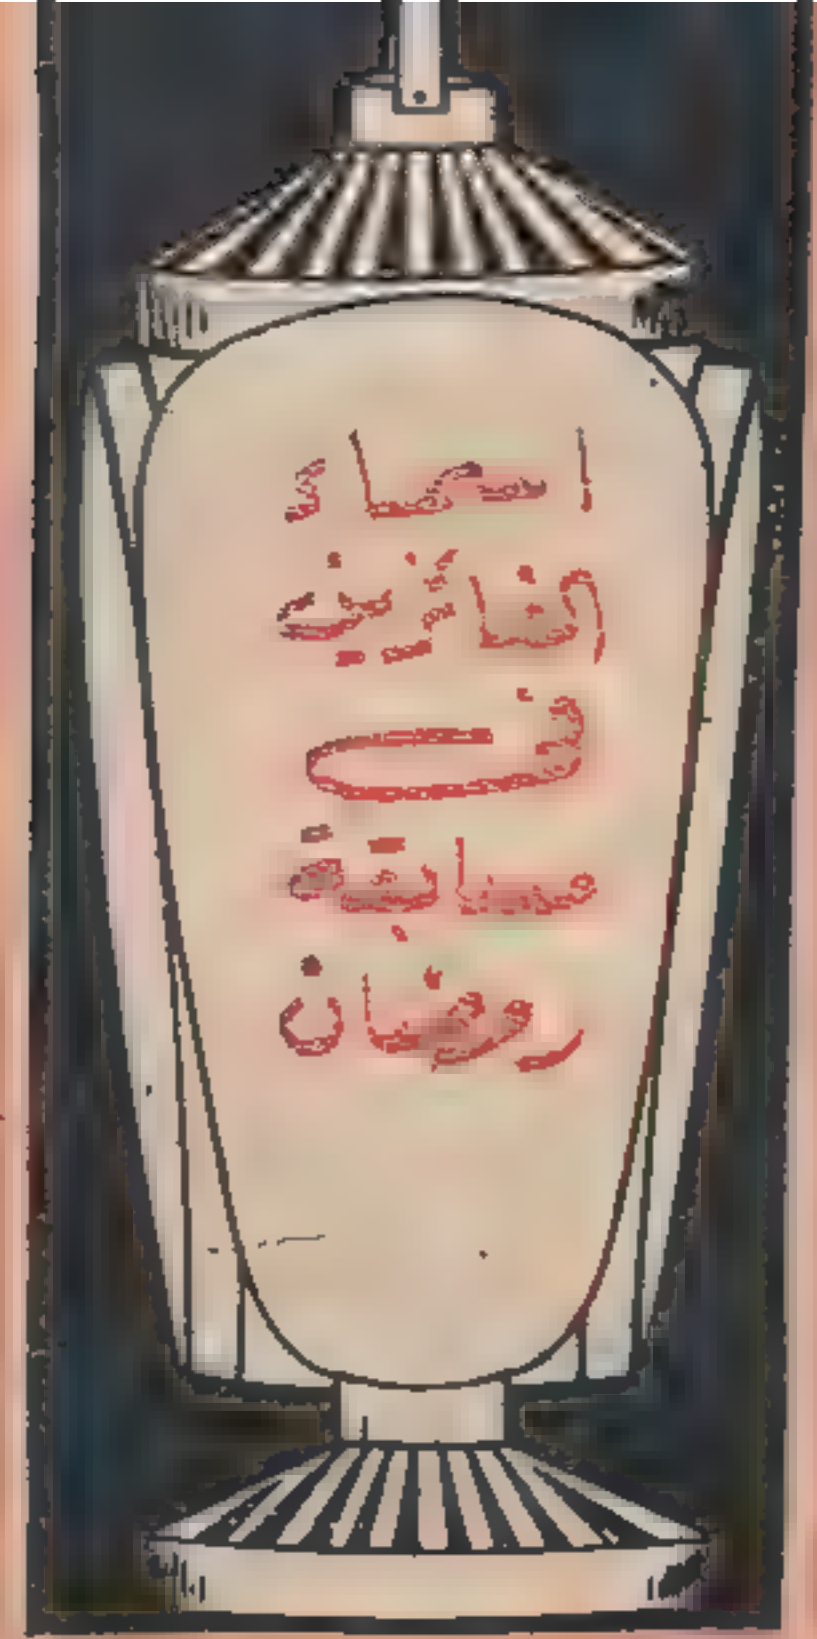 اسماء
الفائزين
فى
مسابقة
رمضان